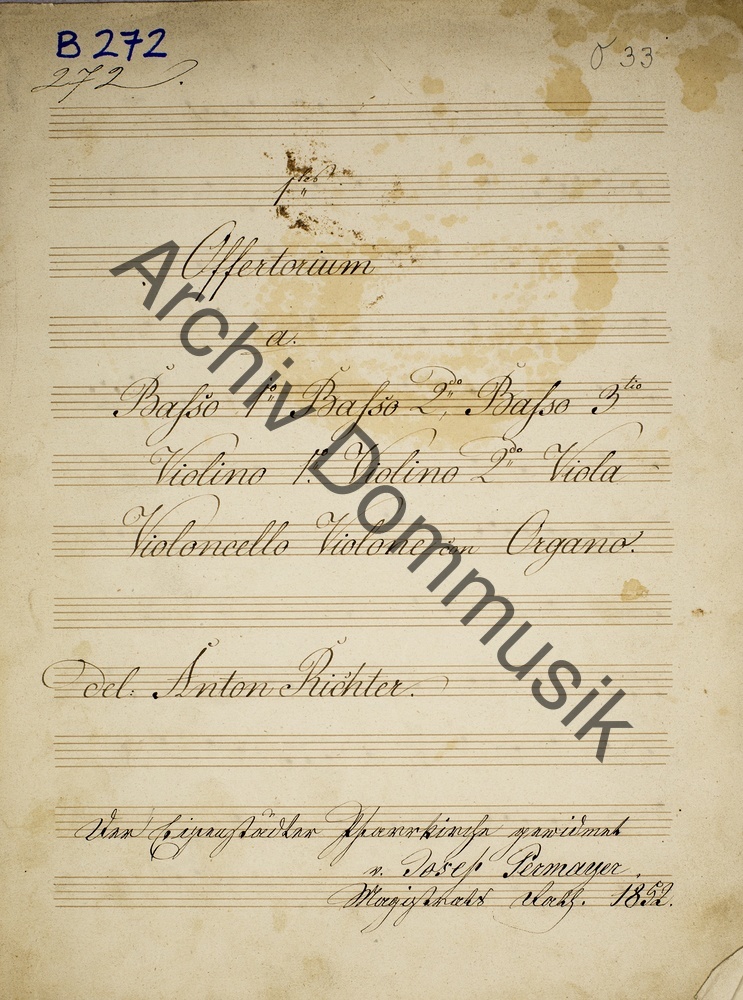 B 272
O 33
272.
1tes
Offertorium
a.
Basso 1mo Basso 2do, Basso 3tio
Violino 1mo Violino 2do Viola
Violoncello Violone con Organo.
Del: Anton Richter.
Der Eisenstädter Pfarrkirche gewidmet
v. Josef Permayer,
Magistrats Rath. 1852.
Archiv Dommusik